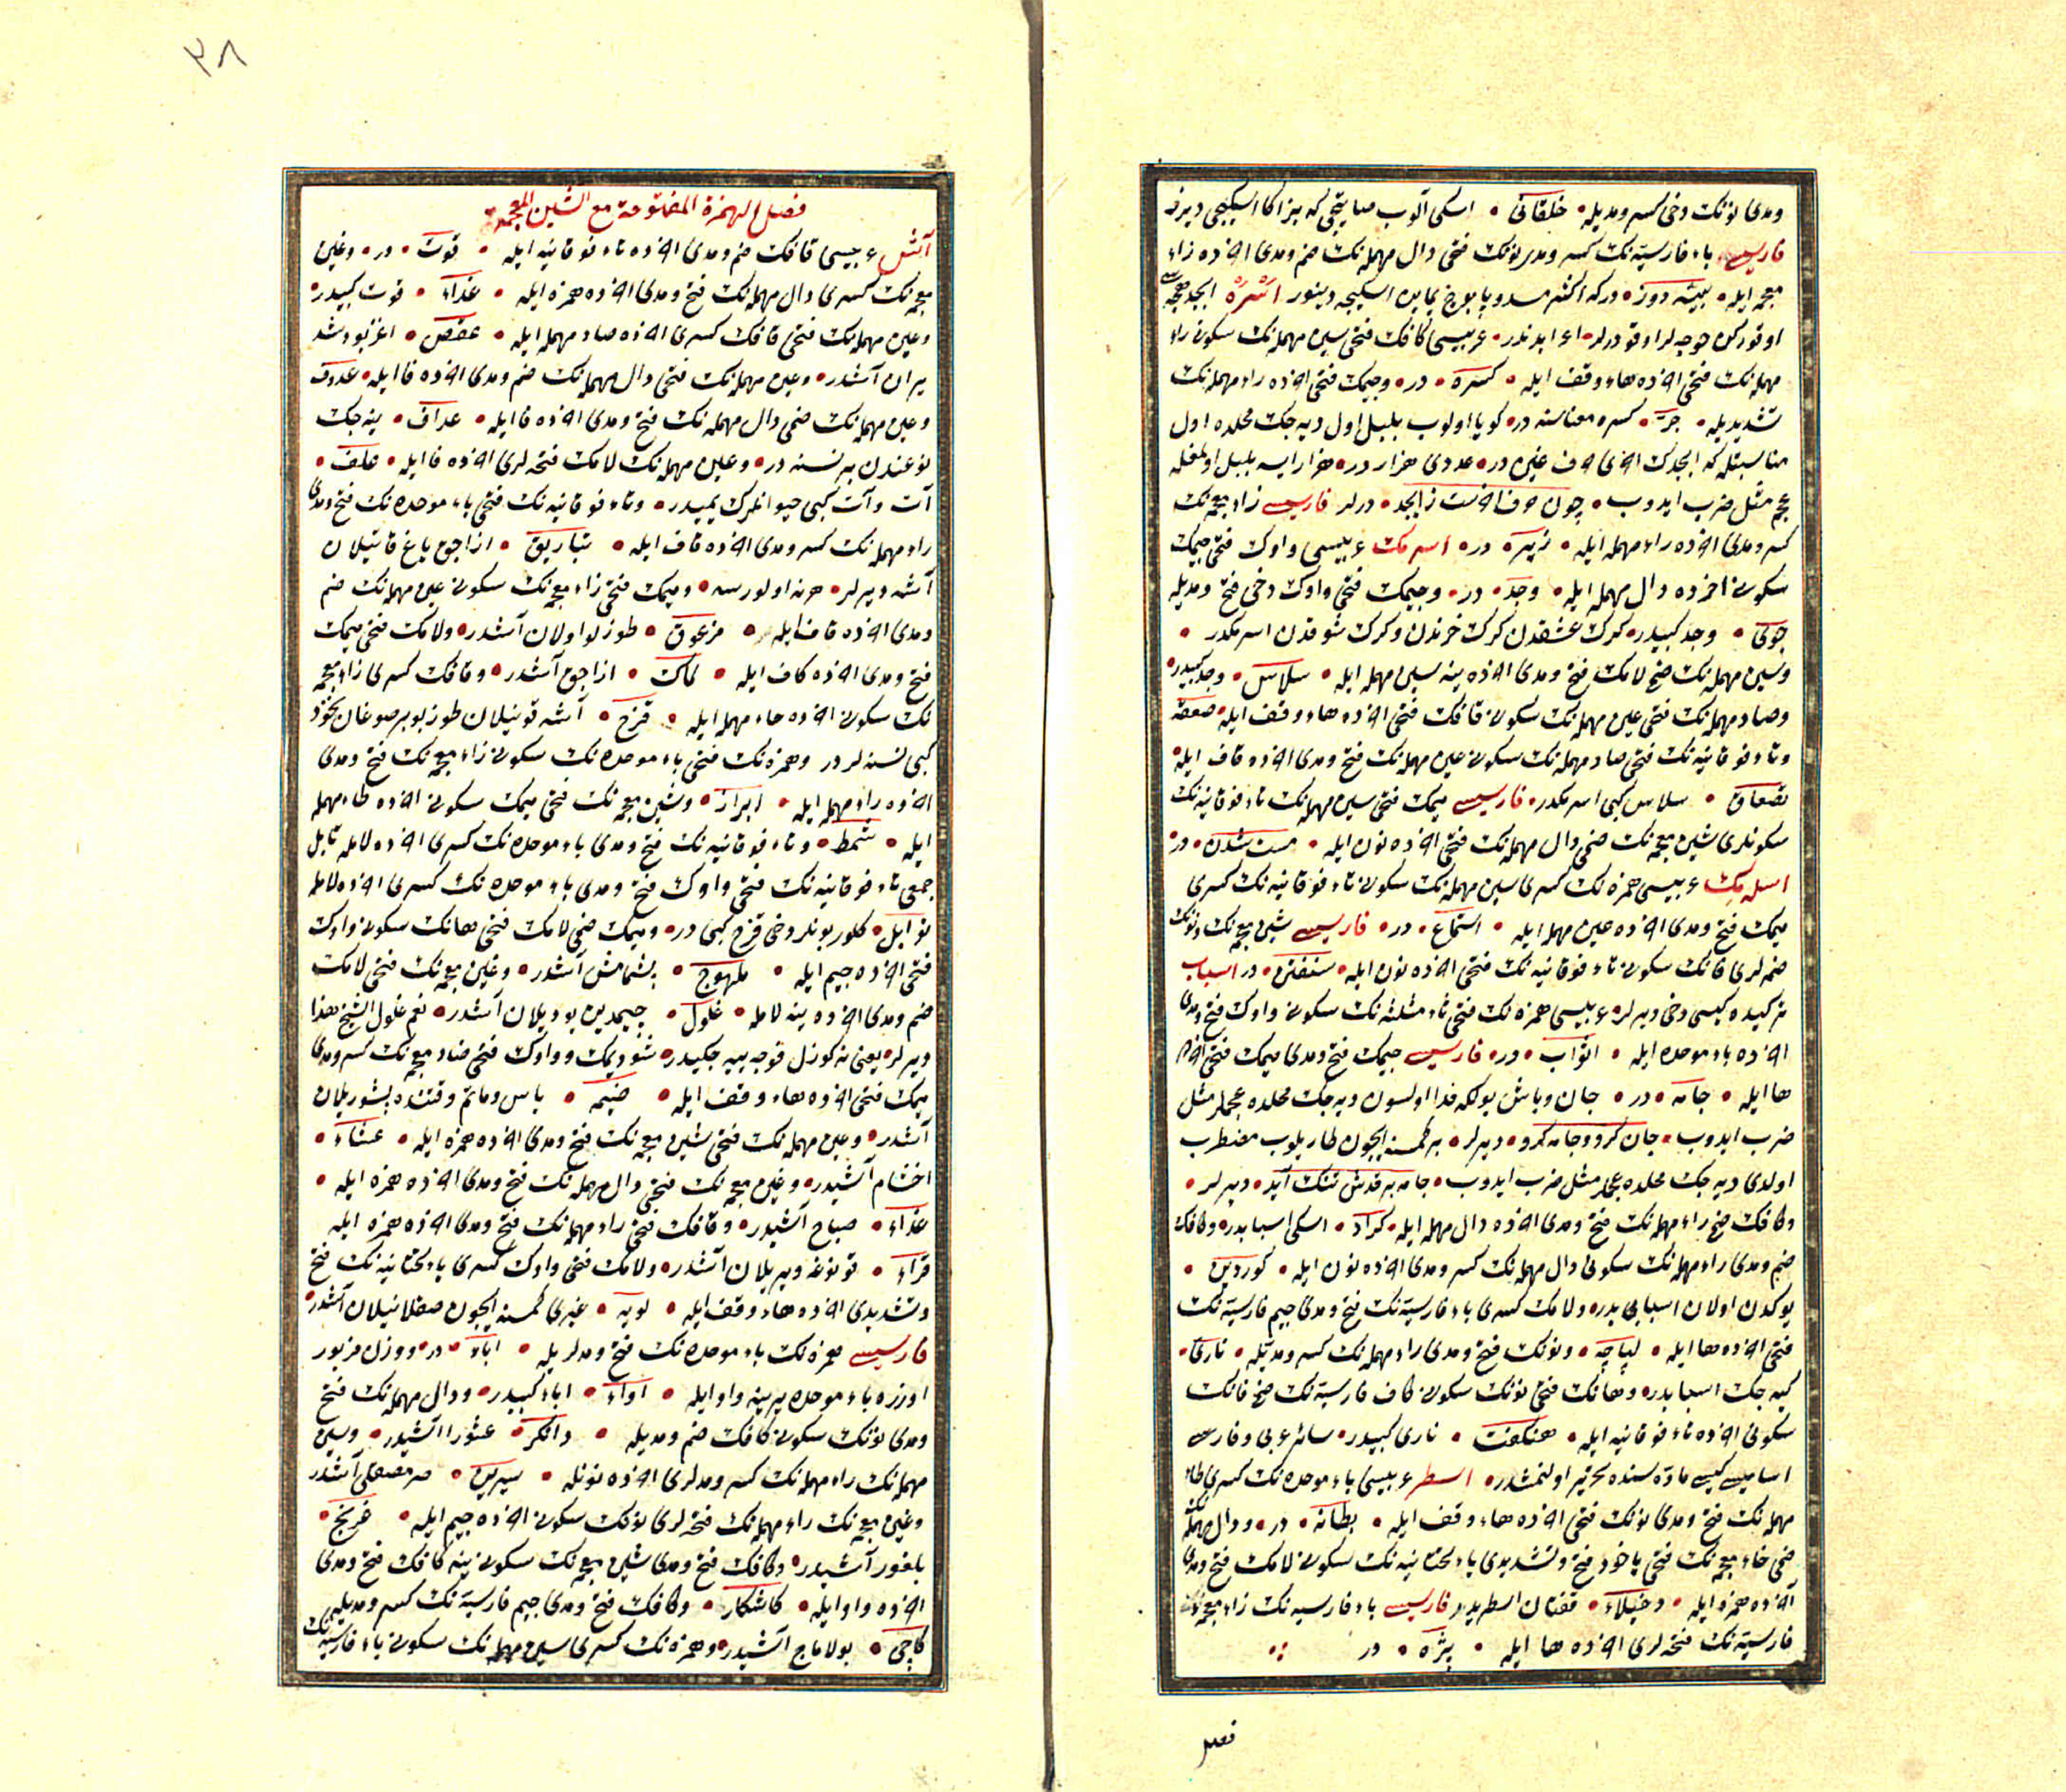 ومدی نونك دخی كسر ومدیله • خلقانی • اسكی اثوب صاتیجی كه بزاكا اسكیجی دیرز
فارسیسی باء فارسیه‌نك كسر ومدی نونك فتحی دال مهمله‌نك ضم ومدی آخرده زاء
معجمه ایله • پینه دوز • در كه اكثر مست و پابوج یمایان اسكیجه دینور اسره ابجد
اوقوركن خوجه‌لر اوقودرلر • عربیسی كافك فتحی سین مهمله‌نك سكونی راء
مهمله‌نك فتحی آخرده هاء وقف ایله • كسره • در • وجیمك فتحی آخرده راء مهمله‌نك
تشدیدیله • جر • كسره معناسنه در • كویا اولوب بلبل اول دیه‌جك محلده اول
مناسبتله كه ابجدك آخری حرف غین در • عددی هزار در • هزار ایسه بلبل اولمغله
عجم مثل ضرب ایدوب • چون حرف آخرست ز ابجد • درلر فارسیسی زاء معجمه‌نك
كسر ومدی آخرده راء مهمله ایله • زیر • در • اسرمك عربیسی واوك فتحی جیمك
سكونی آخرده دال مهمله ایله • وجد • در • وجیمك فتحی واوك دخی فتح ومدیله
جوی • وجد كبیدر • كرك عشقدن كرك خرندن وكرك شوقدن اسرمكدر •
وسین مهمله‌نك ضمی لامك فتح ومدی آخرده ینه سین مهمله ایله • سلاس • وجد كبیدر
وصاد مهمله‌نك فتحی عین مهمله‌نك سكونی قافك فتحی آخرده هاء وقف ایله • صعقه
وتاء فوقانیه‌نك فتحی صاد مهمله‌نك سكونی عین مهمله‌نك فتح ومدی آخرده قاف ایله
تصعاق • سلاس كبی اسرمكدر • فارسیسی میمك فتحی سین مهمله‌نك تاء فوقانیه‌نك
سكونلری شین معجمه‌نك ضمی دال مهمله‌نك فتحی آخرده نون ایله • مست شدن • در
اسله‌مك عربیسی همزه‌نك كسری سین مهمله‌نك سكونی تاء فوقانیه‌نك كسری
میمك فتح ومدی آخرده عین مهمله ایله • استماع • در • فارسیسی شین معجمه‌نك ونونك
ضمه‌لری فانك سكونی تاء فوقانیه‌نك فتحی آخرده نون ایله • شنفتن • در اسباب
دخی دیرلر • عربیسی همزه‌نك فتحی ثاء مثلثه‌نك سكونی واوك فتح ومدی
آخرده باء موحده ایله • اثواب • در • فارسیسی جیمك فتح ومدی میمك فتحی آخرده
ها ایله • جامه • در • جان وباش یولكه فدا اولسون دیه‌جك محلده عجملر مثل
ضرب ایدوب • جان كرو وجامه كرو • دیرلر • بر كمسنه ایچون طاریلوب مضطرب
اولدی دیه‌جك محلده عجملر مثل ضرب ایدوب • جامه بر قدش تنك آید • دیرلر •
وكافك ضمی راء مهمله‌نك فتح ومدی آخرده دال مهمله ایله • كراد • اسكی اسبابدر • وكافك
ضم ومدی راء مهمله‌نك سكونی دال مهمله‌نك كسر ومدی آخرده نون ایله • كوردین •
یوكدن اولان اسبابدر • ولامك كسری باء فارسیه‌نك فتح ومدی جیم فارسیه‌نك
فتحی آخرده ها ایله • لپاچه • ونونك فتح ومدی راء مهمله‌نك كسر ومدیله • ناری •
كیه‌جك اسبابدر • وهانك فتحی نونك سكونی كاف فارسیه‌نك ضمی فانك
سكونی آخرده تاء فوقانیه ایله • هنكفت • ناری كبیدر • سائر عربی وفارسی
اسامیسی كیسی ماده‌سنده تحریر اولنمشدر • استر عربیسی باء موحده‌نك كسری طاء
مهمله‌نك فتح ومدی نونك فتحی آخرده هاء وقف ایله • بطانه • در • ودال مهمله‌نك
ضمی خاء معجمه‌نك فتحی یاخود فتح وتشدیدی یاء تحتانیه‌نك سكونی لامك فتح ومدی
آخرده همزه ایله • دخیلاء • قفتان استریدر فارسیسی باء فارسیه‌نك زاء معجمه‌نك
فارسیه‌نك فتحه‌لری آخرده ها ایله • پژه • در
فصل
٣٨
فصل الهمزة المفتوحة مع الشین المعجمة
آش عربیسی قافك ضم ومدی آخرده تاء فوقانیه ایله • قوت • در • وغین
معجمه‌نك كسری دال مهمله‌نك فتح ومدی آخرده همزه ایله • غداء • قوت كبیدر •
وعین مهمله‌نك فتحی قافك كسری آخرده صاد مهمله ایله • عقص •
آشدر • وعین مهمله‌نك فتحی دال مهمله‌نك ضم ومدی آخرده فا ایله • عدوف
وعین مهمله‌نك ضمی دال مهمله‌نك فتح ومدی آخرده فا ایله • عداف • ینه‌جك
نوعندن بر نسنه در • وعین مهمله‌نك لامك فتحه‌لری آخرده فا ایله • علف •
آت وآت كبی حیوانلرك یمیدر • وتاء فوقانیه‌نك فتحی باء موحده‌نك فتح ومدی
راء مهمله‌نك كسر ومدی آخرده قاف ایله • تباریق • ازاجق یاغ قاتیلان
آشه دیرلر • هرنه اولورسه • ومیمك فتحی زاء معجمه‌نك سكونی عین مهمله‌نك ضم
ومدی آخرده قاف ایله • مزعوق • طوزلو اولان آشدر • ولامك فتحی میمك
فتح ومدی آخرده كاف ایله • لماك • ازاجق آشدر • وقافك كسری زاء معجمه
نك سكونی آخرده حاء مهمله ایله • قزح • آشه قونیلان طوز بوبر صوغان نخود
كبی نسنه‌لردر وهمزه‌نك فتحی باء موحده‌نك سكونی زاء معجمه‌نك فتح ومدی
آخرده راء مهمله ایله • ابزار • وشین معجمه‌نك فتحی میمك سكونی آخرده طاء مهمله
ایله • شمط • وتاء فوقانیه‌نك فتح ومدی باء موحده‌نك كسری آخرده لامله تابل
جمعی تاء فوقانیه‌نك فتحی واوك فتح ومدی باء موحده‌نك كسری آخرده لامله
توابل • كلور بونلر دخی قزح كبی در • ومیمك ضمی لامك فتحی هانك سكونی واوك
فتحی آخرده جیم ایله • ملهوج • بشمامش آشدر • وغین معجمه‌نك فتحی لامك
ضم ومدی آخرده ینه لامله • غلول • آشدر • نعم غلول الشیخ هذا
دیرلر • یعنی نه كوزل قوجه ییه‌جكیدر • شو دیمك وواوك فتحی ضاد معجمه‌نك كسر ومدی
میمك فتحی آخرده هاء وقف ایله • وضیمه • یاس وماتم وقتنده بشوریلان
آشدر • وعین مهمله‌نك فتحی شین معجمه‌نك فتح ومدی آخرده همزه ایله • عشاء •
اخشام آشیدر • وغین معجمه‌نك فتحی دال مهمله‌نك فتح ومدی آخرده همزه ایله •
غداء • صباح آشیدر • وقافك فتحی راء مهمله‌نك فتح ومدی آخرده همزه ایله
قراء • قونوغه ویریلان آشدر • ولامك فتحی واوك كسری یاء تحتانیه‌نك فتح
وتشدیدی آخرده هاء وقف ایله • لویه • غیری كمسنه ایچون صقلانیلان آشدر •
فارسیسی همزه‌نك باء موحده‌نك فتح ومدلریله • اباء • در • ووزن مزبور
اوزره باء موحده یرینه واو ایله • اواء • اباء كبیدر • ودال مهمله‌نك فتح
ومدی نونك سكونی كافك ضم ومدیله • دانكو • عشورا آشیدر • وسین
مهمله‌نك راء مهمله‌نك كسر ومدلری آخرده نونله • سیرین • آشدر
وغین معجمه‌نك راء مهمله‌نك فتحه‌لری نونك سكونی آخرده جیم ایله • غرنج •
بلغور آشیدر • وكافك فتح ومدی شین معجمه‌نك سكونی ینه كافك فتح ومدی
آخرده واو ایله • كاشكاو • وكافك فتح ومدی جیم فارسیه‌نك كسر ومدیله
كاچی • بولاماج آشیدر • وهمزه‌نك كسری سین مهمله‌نك سكونی باء فارسیه‌نك